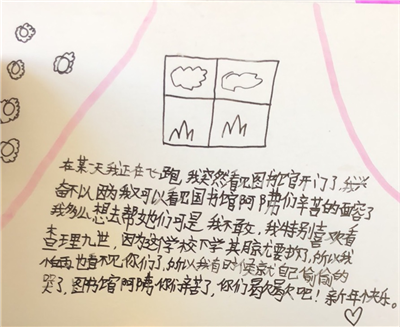 在某天我正在飞跑,我突然看见图书馆开门了,我兴
奋不以因为我可以看见图书馆阿姨们辛苦的面容了
我多么想去帮她们可是我不敢,我特别喜欢看
查理九世,因为这学校下学其期尤要拆了,所以我
怕再也看不见你们了,所以我有时侯就自己偷偷的
哭了,图书馆阿姨你们辛苦了,你们歇歇吧!新年快乐。